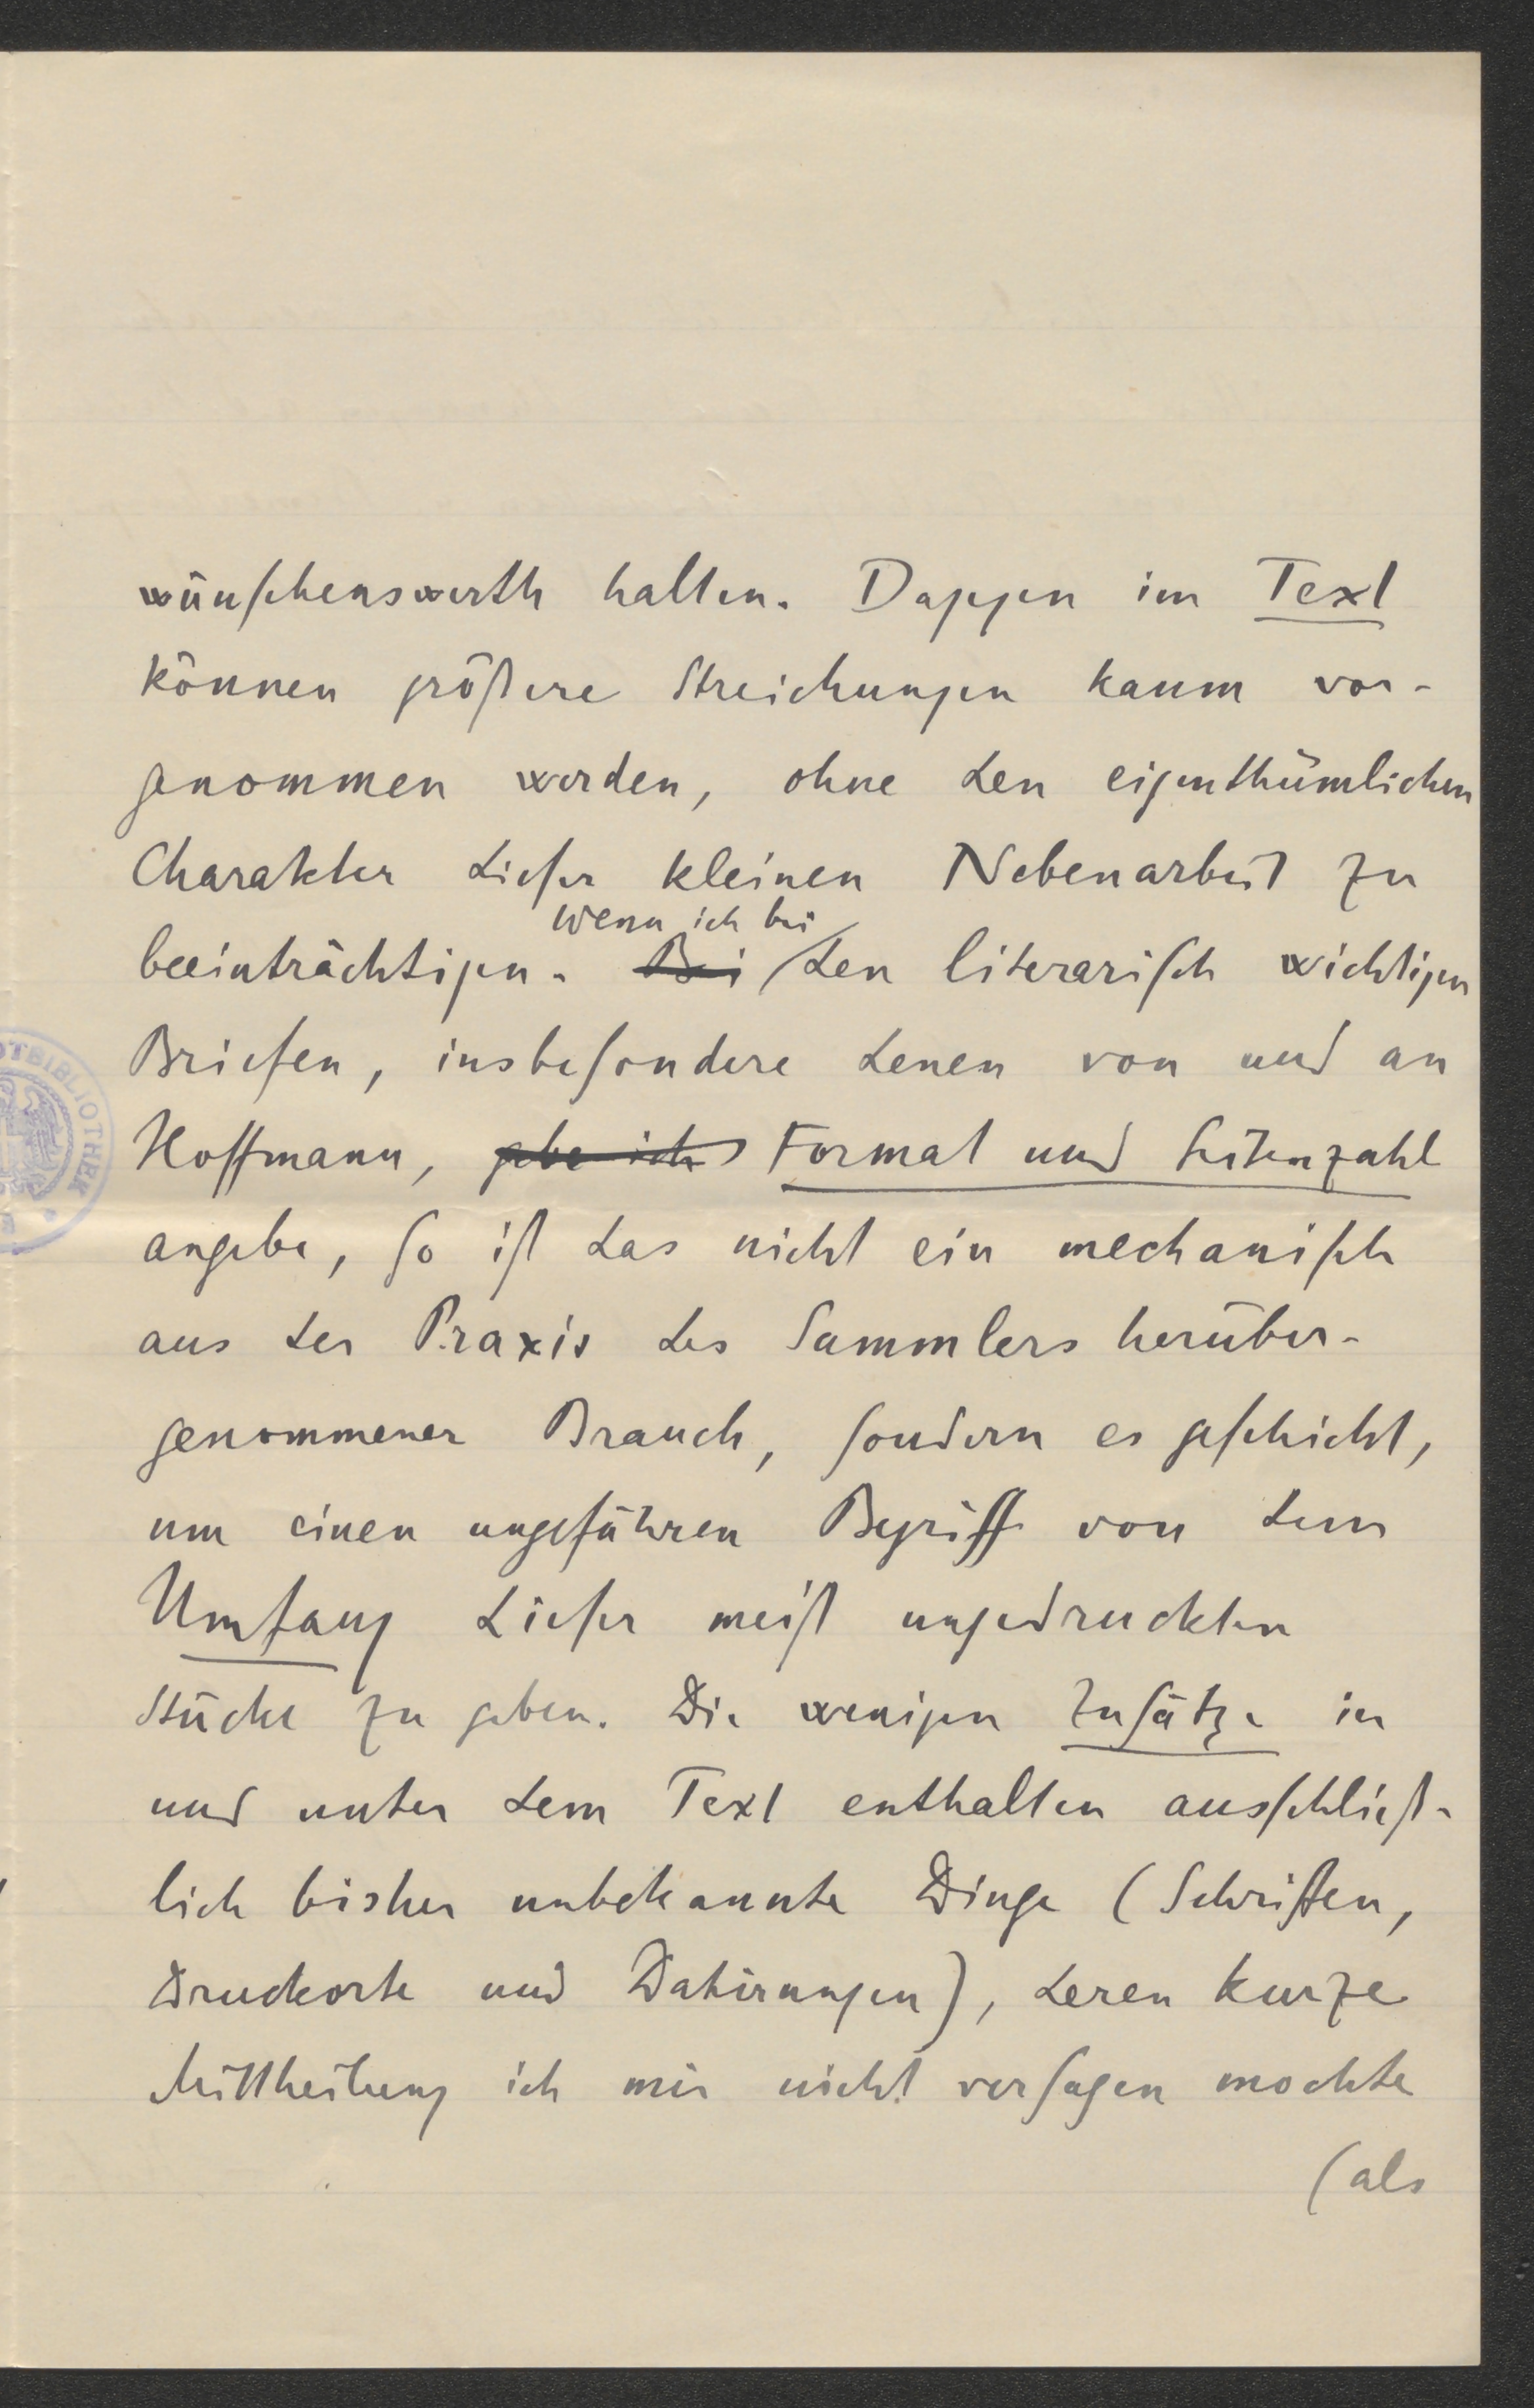 wünschenswerth halten. Dagegen im Text
können größere Streichungen kaum vor-
genommen werden, ohne den eigenthümlichen
Charakter dieser kleinen Nebenarbeit zu
wenn ich bei
beeinträchtigen. Bei den literarisch wichtigen
Briefen, insbesondere denen von und an
Hoffmann, gebe ich Format und Seitenzahl
angebe, so ist das nicht ein mechanisch
aus der Praxis des Sammlers herüber-
genommener Brauch, sondern es geschieht,
um einen ungefähren Begriff von dem
Umfang dieser meist ungedruckten
Stücke zu geben. Die wenigen Zusätze in
und unter dem Text enthalten ausschließ-
lich bisher unbekannte Dinge (Schriften,
Druckorte und Datirungen), deren kurze
Mittheilung ich mir nicht versagen mochte
(als
OTBIBLIOTHEK